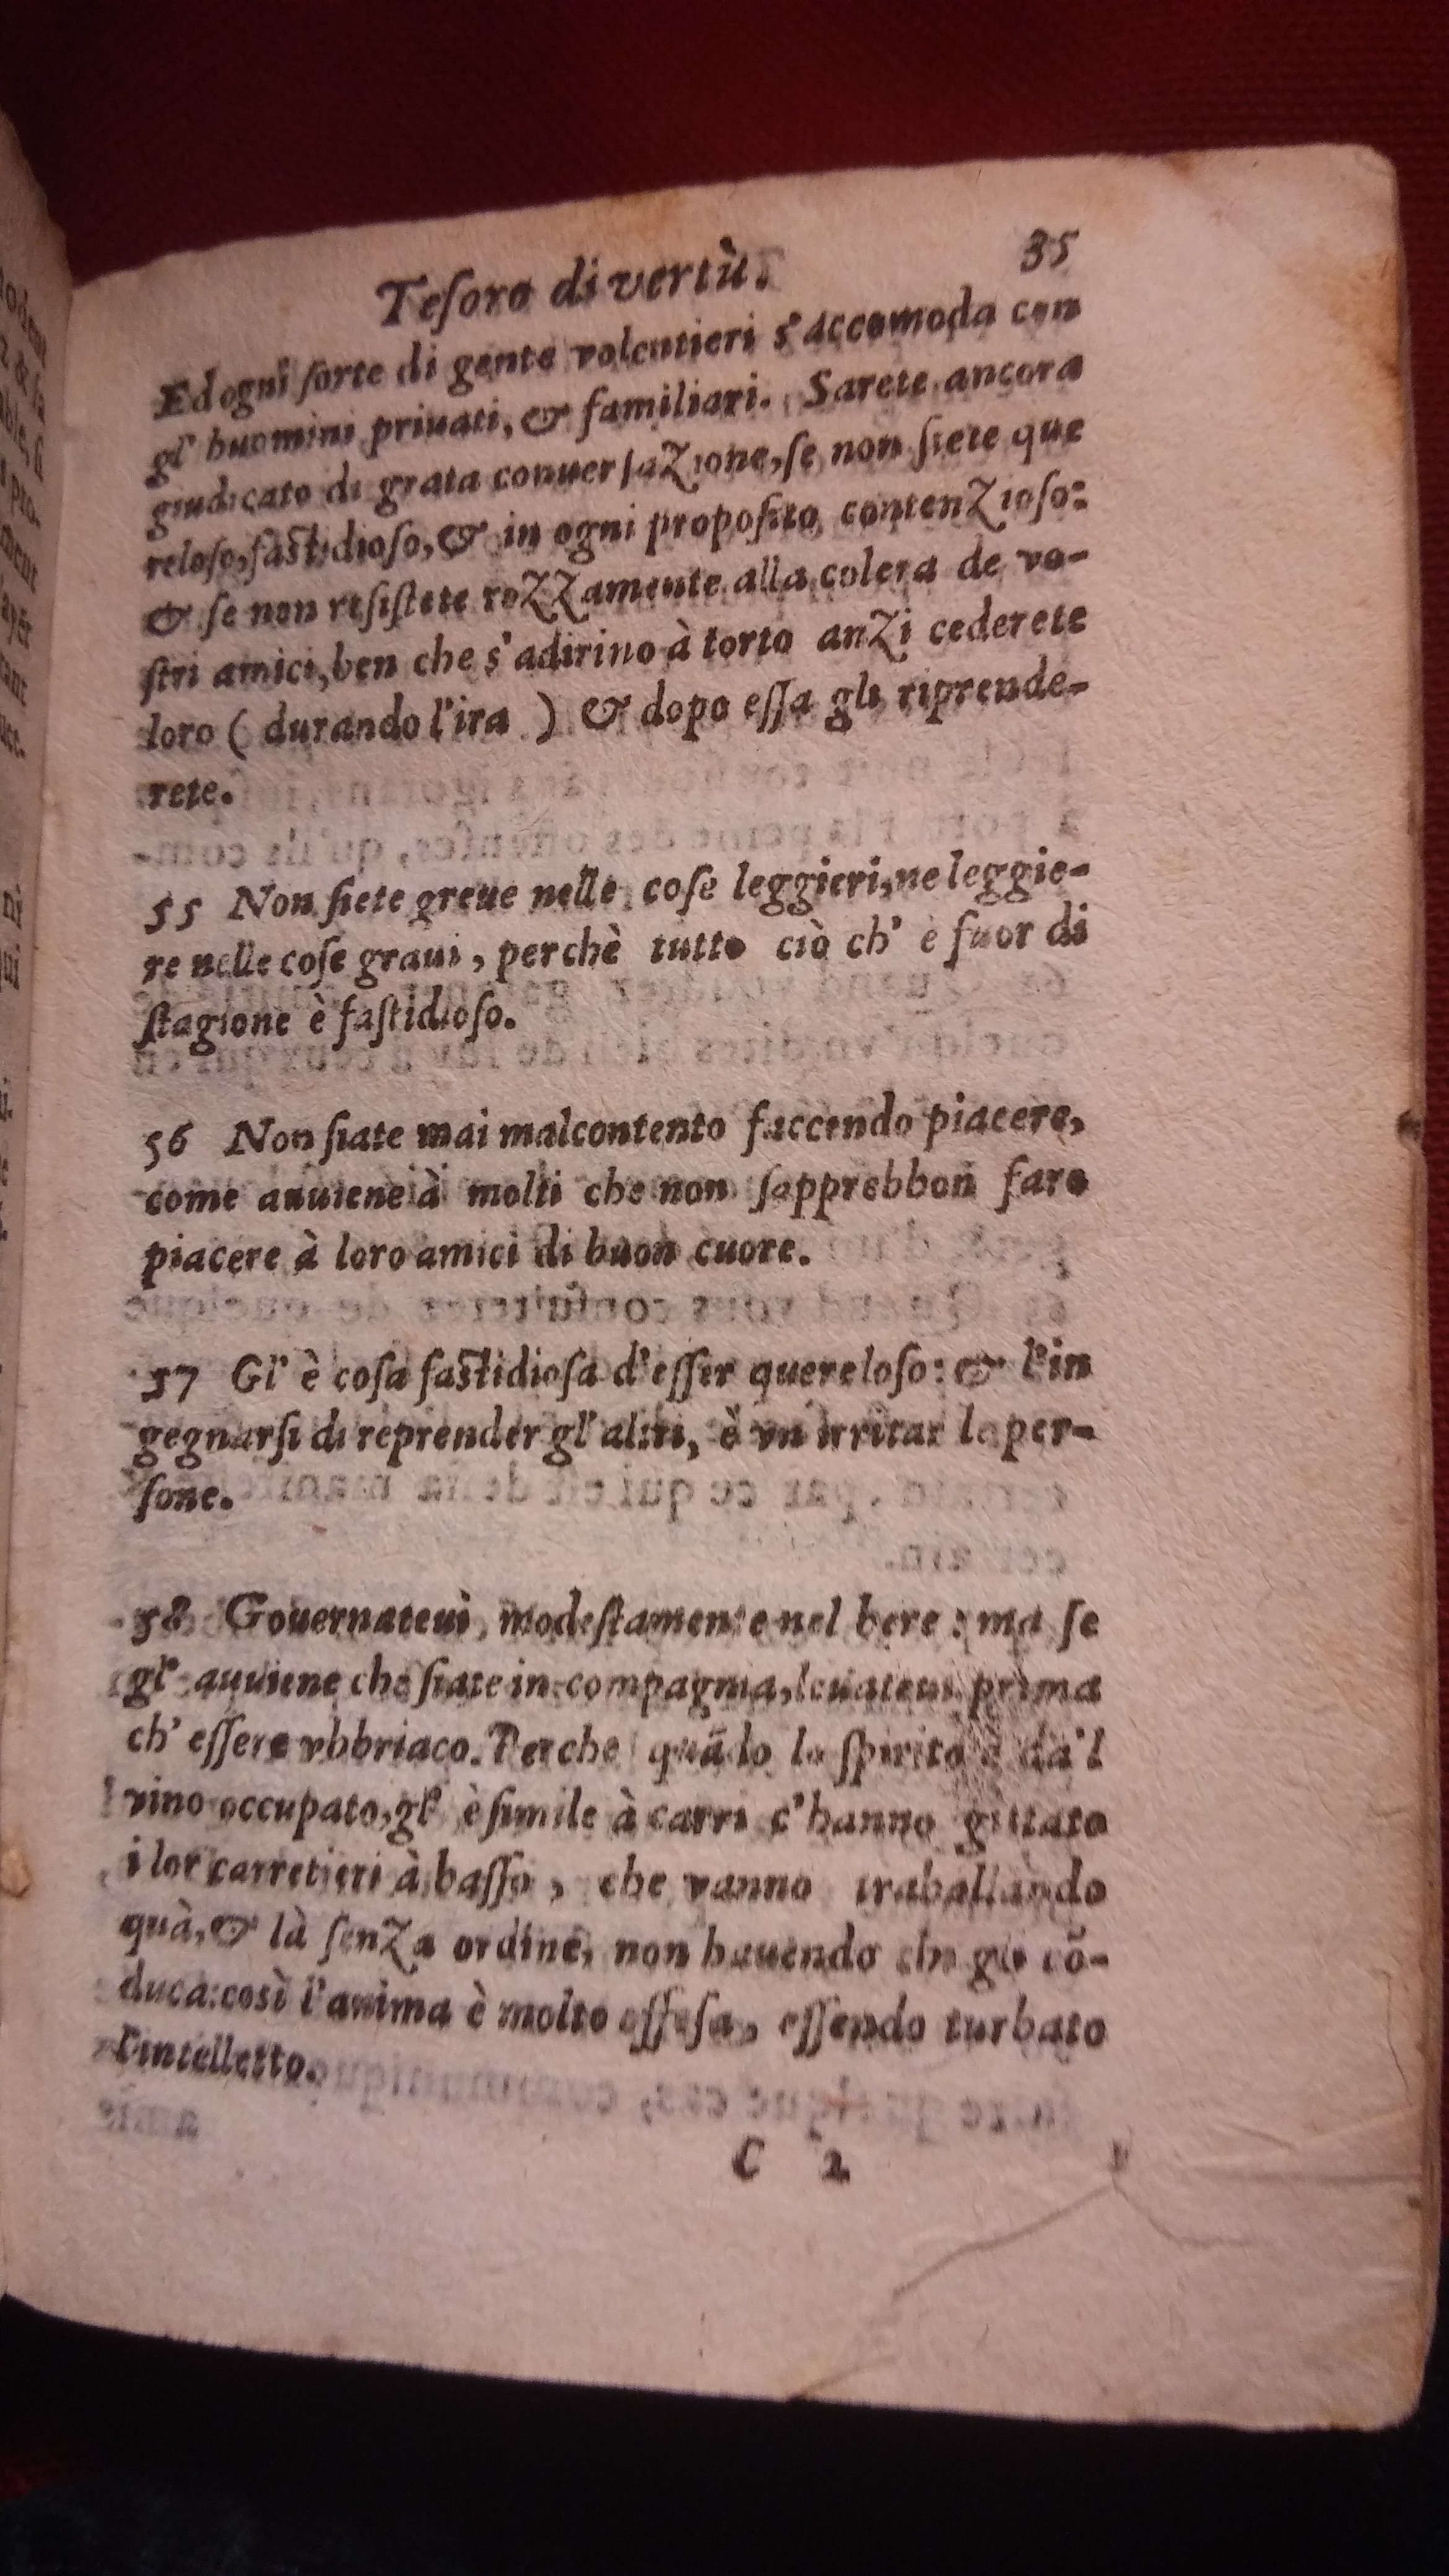 Teſoro di vertù. 35
Ed ogni ſorte di gente volentieri s'accomoda con
gl' huomini priuati, & familiari. Sarete ancora
giudicato di grata conuerſazione, ſe non ſiete que
reloſo, faſtidioſo, & in ogni propoſito contenzioſo:
& ſe non reſiſtete rozzamente alla colera de vo-
ſtri amici, ben che s'adirino à torto anzi cederete
loro ( durando l'ira ) & dopo eſſa gli riprende-
rete.
55 Non ſiete greue nelle coſe leggieri, ne leggie-
re nelle coſe graui, perchè tutto ciò ch' è fuor di
ſtagione è faſtidioſo.
56 Non ſiate mai malcontento faccendo piacere,
come auuiene à molti che non ſapprebbon fare
piacere à loro amici di buon cuore.
57 Gl' è coſa faſtidioſa d'eſſer quereloſo: & l'in
gegnarſi di reprender gl' altri, è vn irritar le per-
ſone.
58 Gouernateui, modeſtamente nel bere: ma ſe
gl' auuiene che ſiate in compagnia, leuateui prima
ch' eſſere vbbriaco. Perche quãdo lo ſpirito è da'l
vino occupato, gl' è ſimile à carri c'hanno gittato
i lor carretieri à baſſo, che vanno traballando
quà, & là ſenza ordine, non hauendo chi gli cõ-
duca: così l'anima è molto offeſa, eſſendo turbato
l'intelletto.
C 2